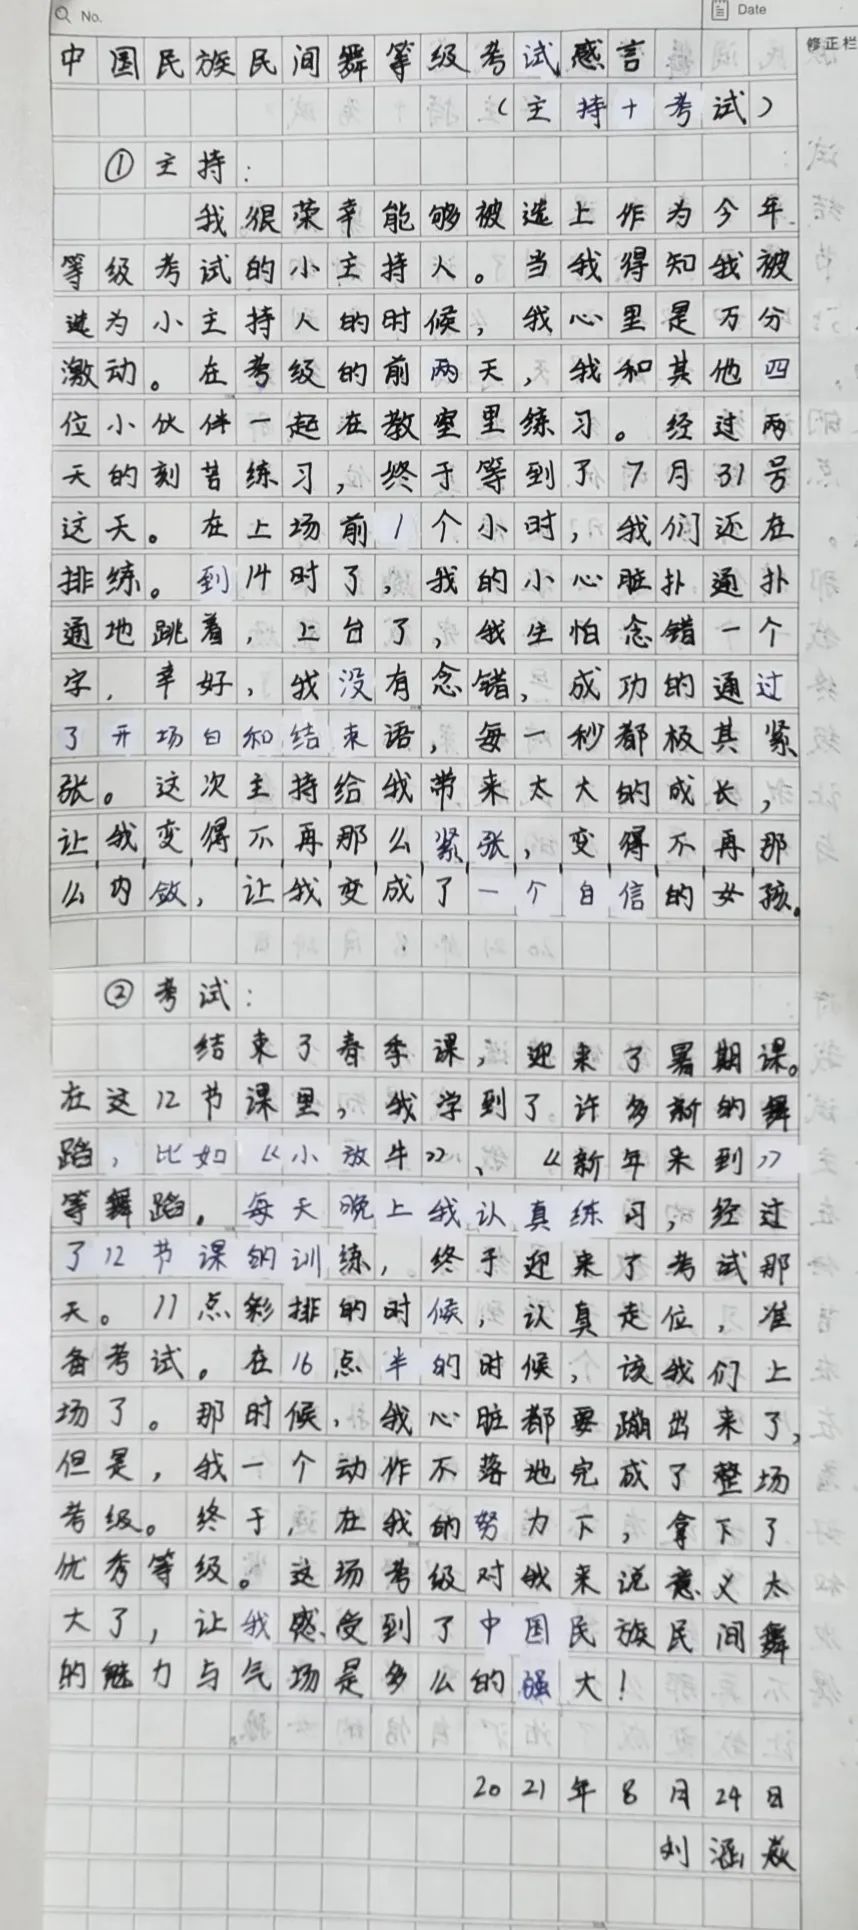 No.
Date
修正栏
中国民族民间舞等级考试感言
（主持＋考试）
①主持：
我很荣幸能够被选上作为今年
等级考试的小主持人。当我得知我被
选为小主持人的时候，我心里是万分
激动。在考级的前两天，我和其他四
位小伙伴一起在教室里练习。经过两
天的刻苦练习，终于等到了7月31号
这天。在上场前1个小时，我们还在
排练。到14时了，我的小心脏扑通扑
通地跳着，上台了，我生怕念错一个
字，幸好，我没有念错，成功的通过
了开场白和结束语，每一秒都极其紧
张。这次主持给我带来太大的成长，
让我变得不再那么紧张，变得不再那
么内敛，让我变成了一个自信的女孩。
②考试：
结束了春季课，迎来了暑期课。
在这12节课里，我学到了许多新的舞
蹈，比如《小放牛》、《新年来到》
等舞蹈。每天晚上我认真练习，经过
了12节课的训练，终于迎来了考试那
天。11点彩排的时候，认真走位，准
备考试。在16点半的时候，该我们上
场了。那时候，我心脏都要蹦出来了，
但是，我一个动作不落地完成了整场
考级。终于，在我的努力下，拿下了
优秀等级。这场考级对我来说意义太
大了，让我感受到了中国民族民间舞
的魅力与气场是多么的强大！
2021年8月24日
刘涵